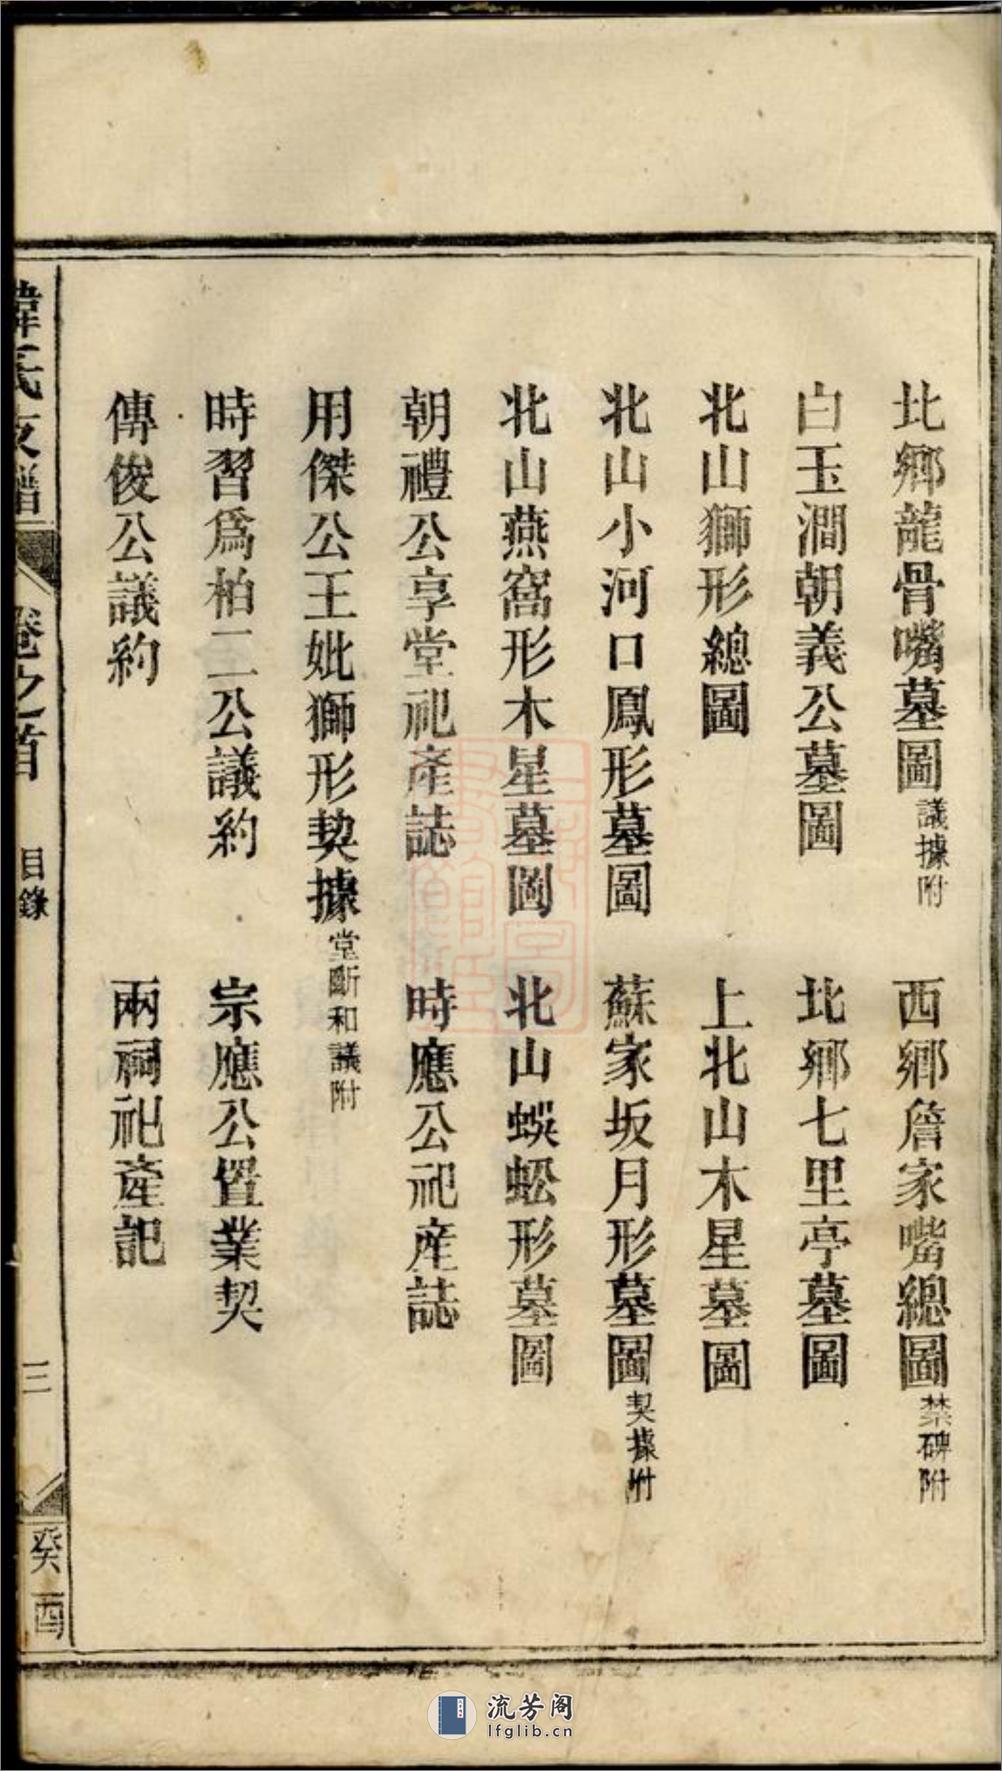 北鄉龍骨嘴墓圖議據附 西鄉詹家嘴總圖禁碑附
白玉澗朝義公墓圖 北鄉七里亭墓圖
北山獅形總圖 上北山木星墓圖
北山小河口鳳形墓圖 蘇家坂月形墓圖契據附
北山燕窩形木星墓圖 北山蜈蚣形墓圖
朝禮公享堂祀產誌 時應公祀產誌
用傑公王妣獅形契據堂斷和議附
時習爲柏二公議約 宗應公置業契
傳俊公議約 兩祠祀產記
氏支譜 卷之首 目錄 三 癸酉
流芳阁
lfglib.cn